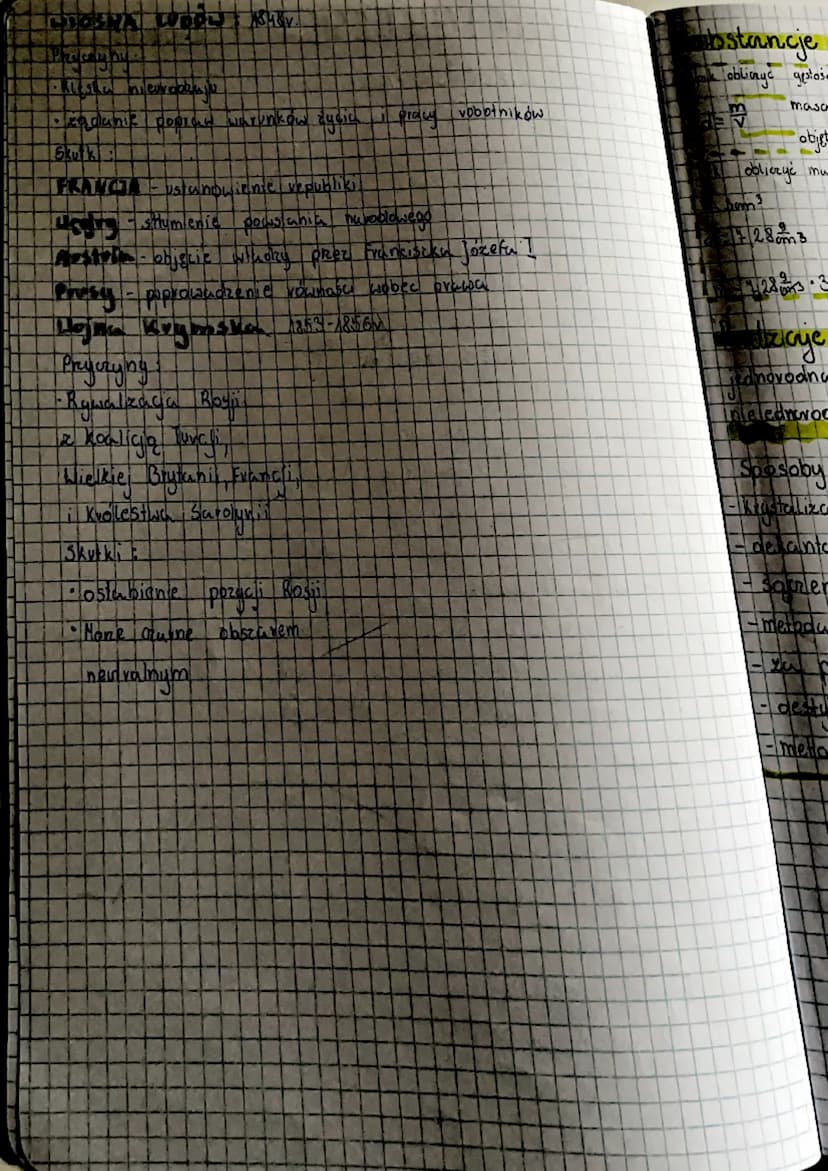 WIOSNA LUDÓW : 1848r.
Przyczyny:
· Klęska nieurodzaju
· żądanie popraw warunków życia i pracy robotników
Skutki :
FRANCJA - ustanowienie republiki
Węgry - stłumienie powstania narodowego
Austria - objęcie władzy przez Franciszka Józefa I
Prusy - poprowadzenie równości wobec prawa
Wojna Krymska 1853-1856r
Przyczyny:
· Rywalizacja Rosji
z Koalicją Turcji,
Wielkiej Brytanii, Francji,
i Królestwa Sardynii
Skutki :
· osłabianie pozycji Rosji
· Morze czarne obszarem
neutralnym
substancje
obliczyć gęstoś
d = m/V masa
objęt
obliczyć ma
7,28 g/cm3
jednorodna
Sposoby
- krystaliza
- dekanta
- metoda
- za p
- desty
- meto